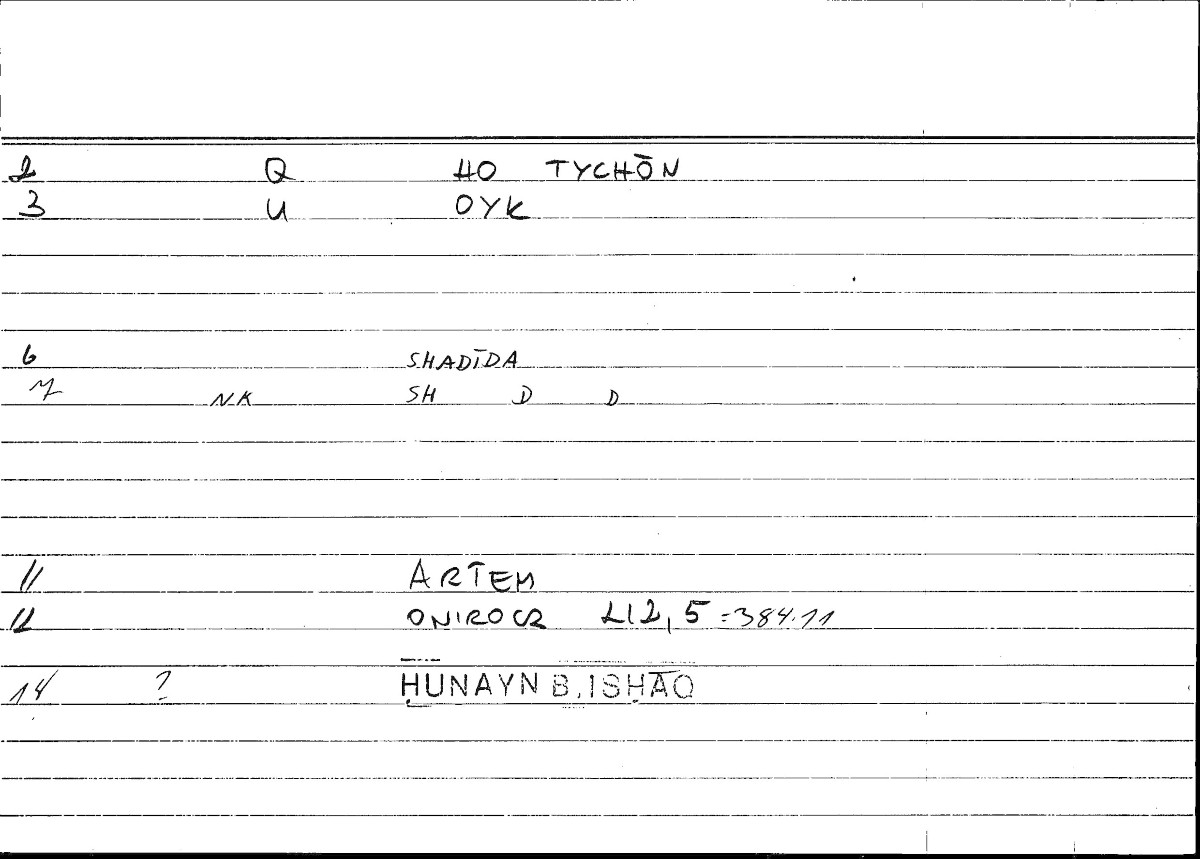 2 Q HO TYCHŌN
3 U OYK
6 SHADĪDA
7 NK SH D D
11 ARTEM
12 ONIROCR 212,5 =384.11
14 ? ḤUNAYN B. ISḤĀQ